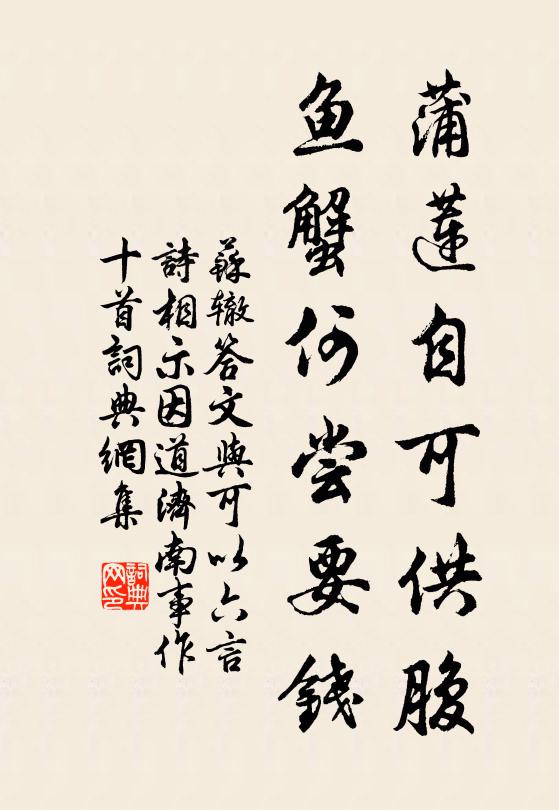 蒲莲自可供腹
鱼蟹何尝要錢
蘇辙答文與可以六言
詩相示因道濟南事作
十首詞典網集
詞典
网印